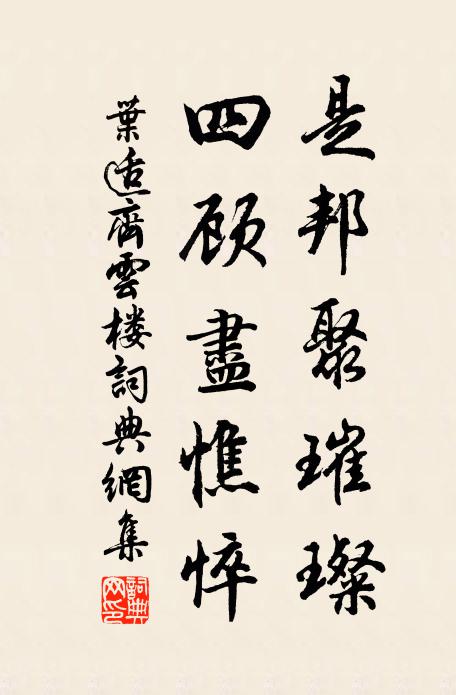 是邦聚璀璨
四顾盡憔悴
葉适齊雲楼詞典網集
詞典网印